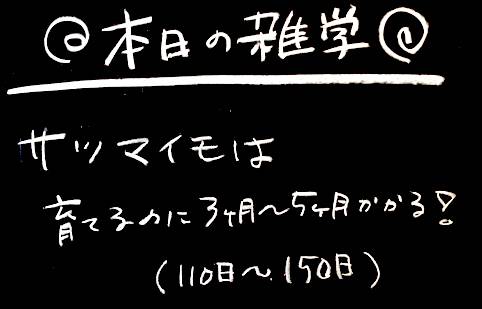 @本日の雑学@
サツマイモは
育てるのに3ヶ月〜5ヶ月かかる!
(110日〜150日)